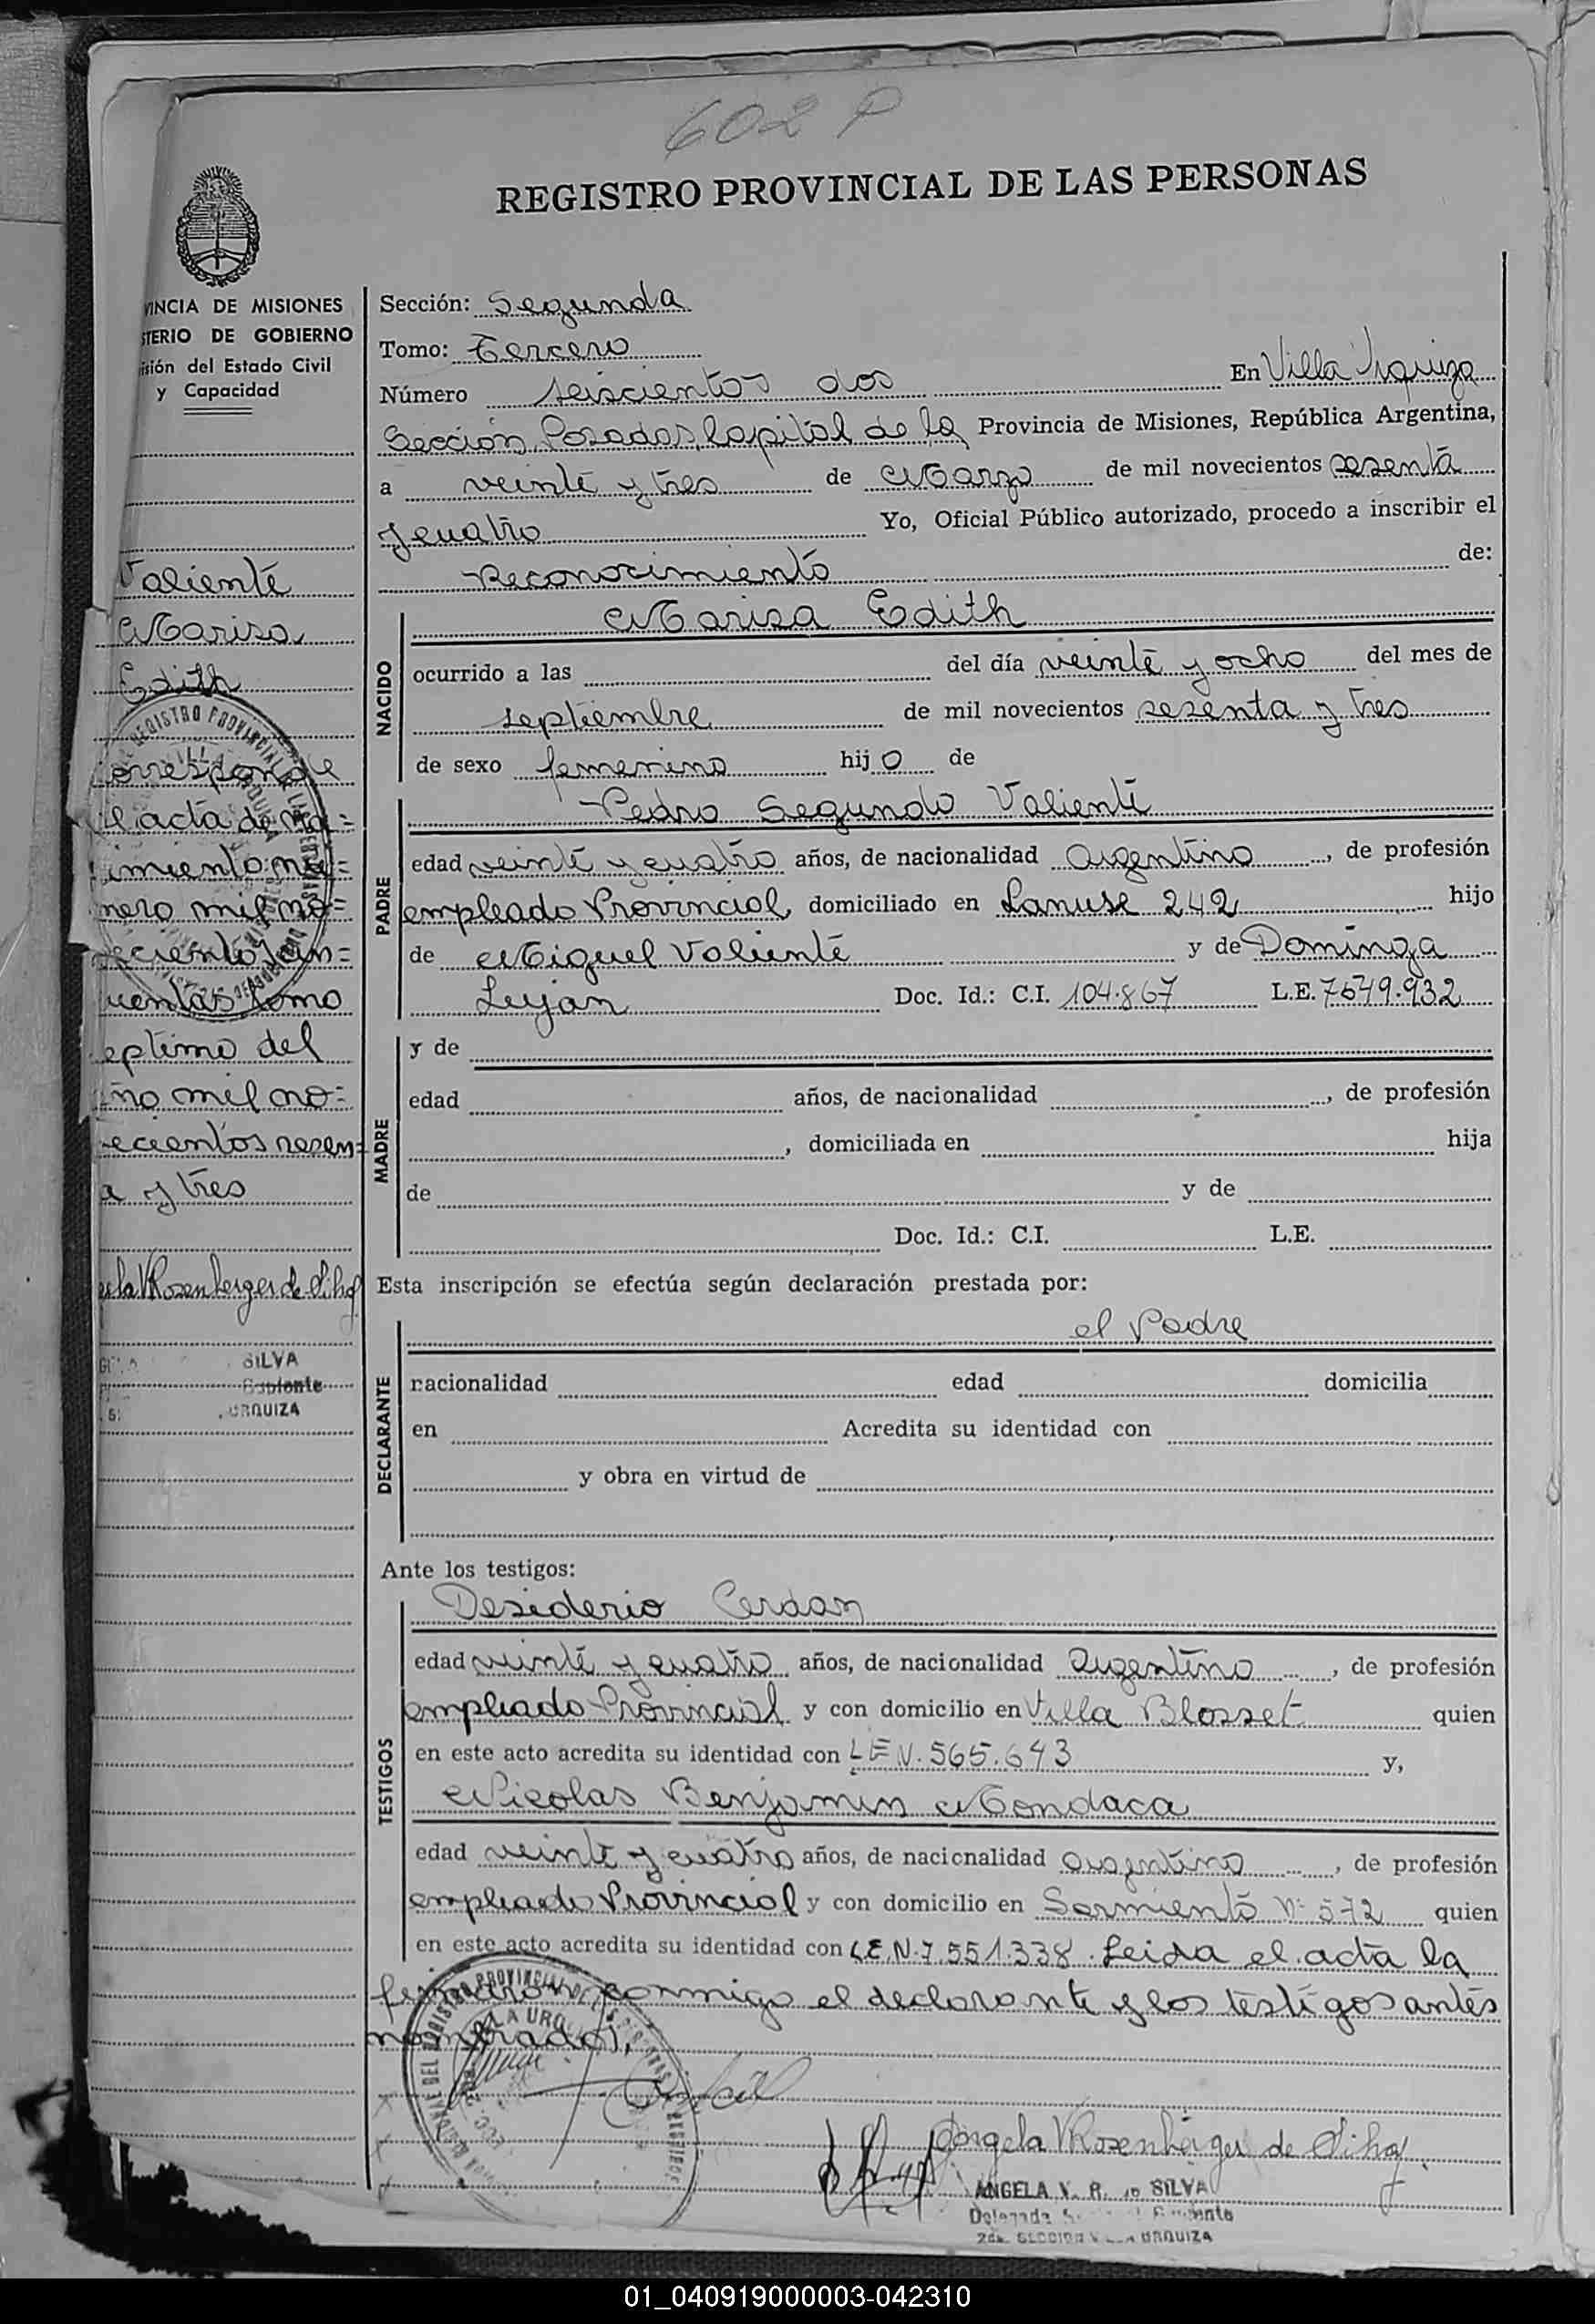 602 P
REGISTRO PROVINCIAL DE LAS PERSONAS
VINCIA DE MISIONES
STERIO DE GOBIERNO
isión del Estado Civil
y Capacidad
Valiente
Marisa
Edith
Corresponde
el acta de na=
imiento nú=
mero mil no=
vecientos cin=
cuenta tomo
eptimo del
año mil no=
vecientos sesen=
a y tres
SILVA
Suplente
URQUIZA
Sección: Segunda
Tomo: Tercero
Número seiscientos dos En Villa Urquiza
Sección, Posadas, Capital de la Provincia de Misiones, República Argentina,
a veinte y tres de Marzo de mil novecientos sesenta
y cuatro Yo, Oficial Público autorizado, procedo a inscribir el
Reconocimiento de:
NACIDO
Marisa Edith
ocurrido a las del día veinte y ocho del mes de
septiembre de mil novecientos sesenta y tres
de sexo femenino hijo de
PADRE
Pedro Segundo Valiente
edad veinte y cuatro años, de nacionalidad argentino, de profesión
empleado Provincial domiciliado en Lanuse 242 hijo
de Miguel Valiente y de Dominga
Lujan Doc. Id.: C.I. 104.867 L.E. 7549.932
MADRE
y de
edad años, de nacionalidad , de profesión
, domiciliada en hija
de y de
Doc. Id.: C.I. L.E.
Esta inscripción se efectúa según declaración prestada por:
DECLARANTE
el Padre
nacionalidad edad domicilia
en Acredita su identidad con
y obra en virtud de
Ante los testigos:
TESTIGOS
Desiderio Cerdan
edad veinte y cuatro años, de nacionalidad argentino, de profesión
empleado Provincial y con domicilio en Villa Blosset quien
en este acto acredita su identidad con L E N. 565.643 y,
Nicolas Benjamin Mondaca
edad veinte y cuatro años, de nacionalidad argentino, de profesión
empleado Provincial y con domicilio en Sarmiento Nº 572 quien
en este acto acredita su identidad con L.E.N. 7.551.338. Leida el acta la
firmaron conmigo el declarante y los testigos antes
nombrados.
Angela V Rosenberger de Silva
ANGELA V. R. de SILVA
Delegada Suplente
2da. SECCION VILLA URQUIZA
01_040919000003-042310